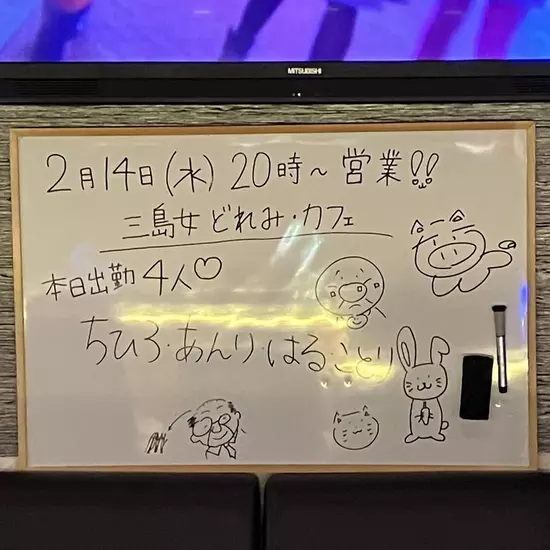 MITSUBISHI
2月14日(水) 20時~営業!!
三島女どれみ・カフェ
本日出勤4人♡
ちひろ・あんり・はる・ことり